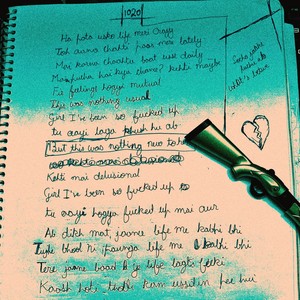 1020
Ho pata usko life meri crazy
Toh aana chahti paas mere lately
Mai karna chaahta baat usse daily
Mai puchha hai tujhe chance? kehti maybe
Fir feelings hogyi mutual
This was nothing usual
Girl I've been so fucked up
tu aayi laga hush hu ab
But this was nothing new to her
Kehti mai delusional
Girl I've been so fucked up
tu aayi hogya fucked up mai aur
Ab dikh mat jaana life me kabhi bhi
Tujhe bhool ni paunga life me kabhi bhi
Tere jaane baad k ye life lagti feeki
Kaash hoti thodi kam usdin pee hui